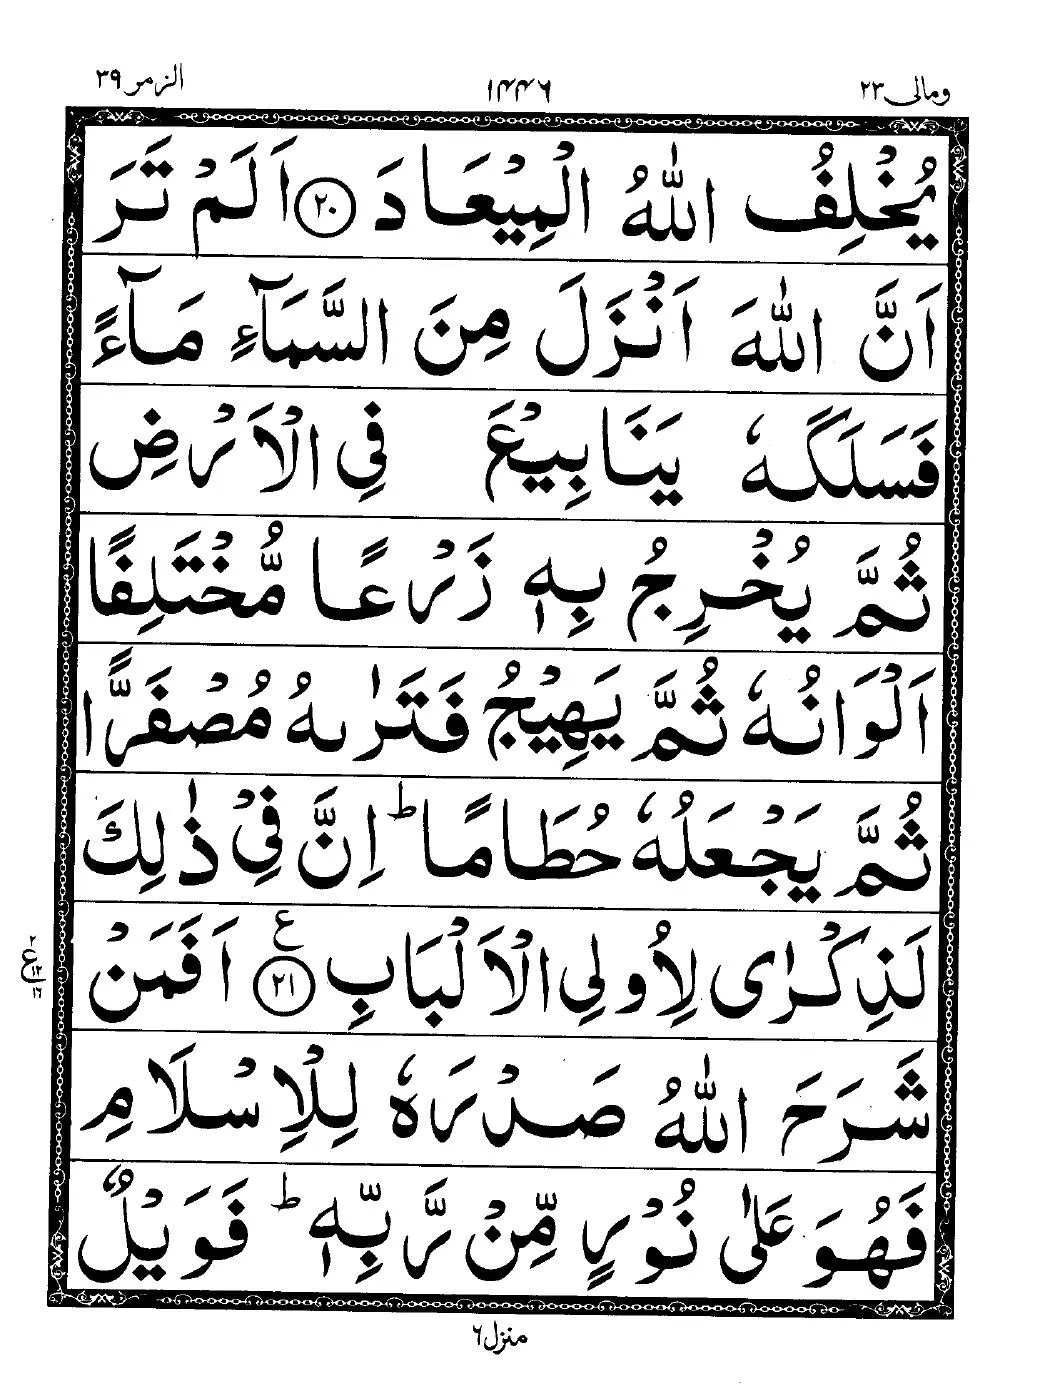 ومالی ٢٣ ١٤٤٦ الزمر ٣٩
يُخْلِفُ اللّٰهُ الْمِيْعَادَ ﴿٢٠﴾ اَلَمْ تَرَ
اَنَّ اللّٰهَ اَنْزَلَ مِنَ السَّمَآءِ مَآءً
فَسَلَكَهٗ يَنَابِيْعَ فِي الْاَرْضِ
ثُمَّ يُخْرِجُ بِهٖ زَرْعًا مُّخْتَلِفًا
اَلْوَانُهٗ ثُمَّ يَهِيْجُ فَتَرٰىهُ مُصْفَرًّا
ثُمَّ يَجْعَلُهٗ حُطَامًا ؕ اِنَّ فِيْ ذٰلِكَ
لَذِكْرٰى لِاُولِي الْاَلْبَابِ ﴿٢١﴾ ع اَفَمَنْ
٢ ع ١٢ ١٦
شَرَحَ اللّٰهُ صَدْرَهٗ لِلْاِسْلَامِ
فَهُوَ عَلٰى نُوْرٍ مِّنْ رَّبِّهٖ ؕ فَوَيْلٌ
منزل ٦